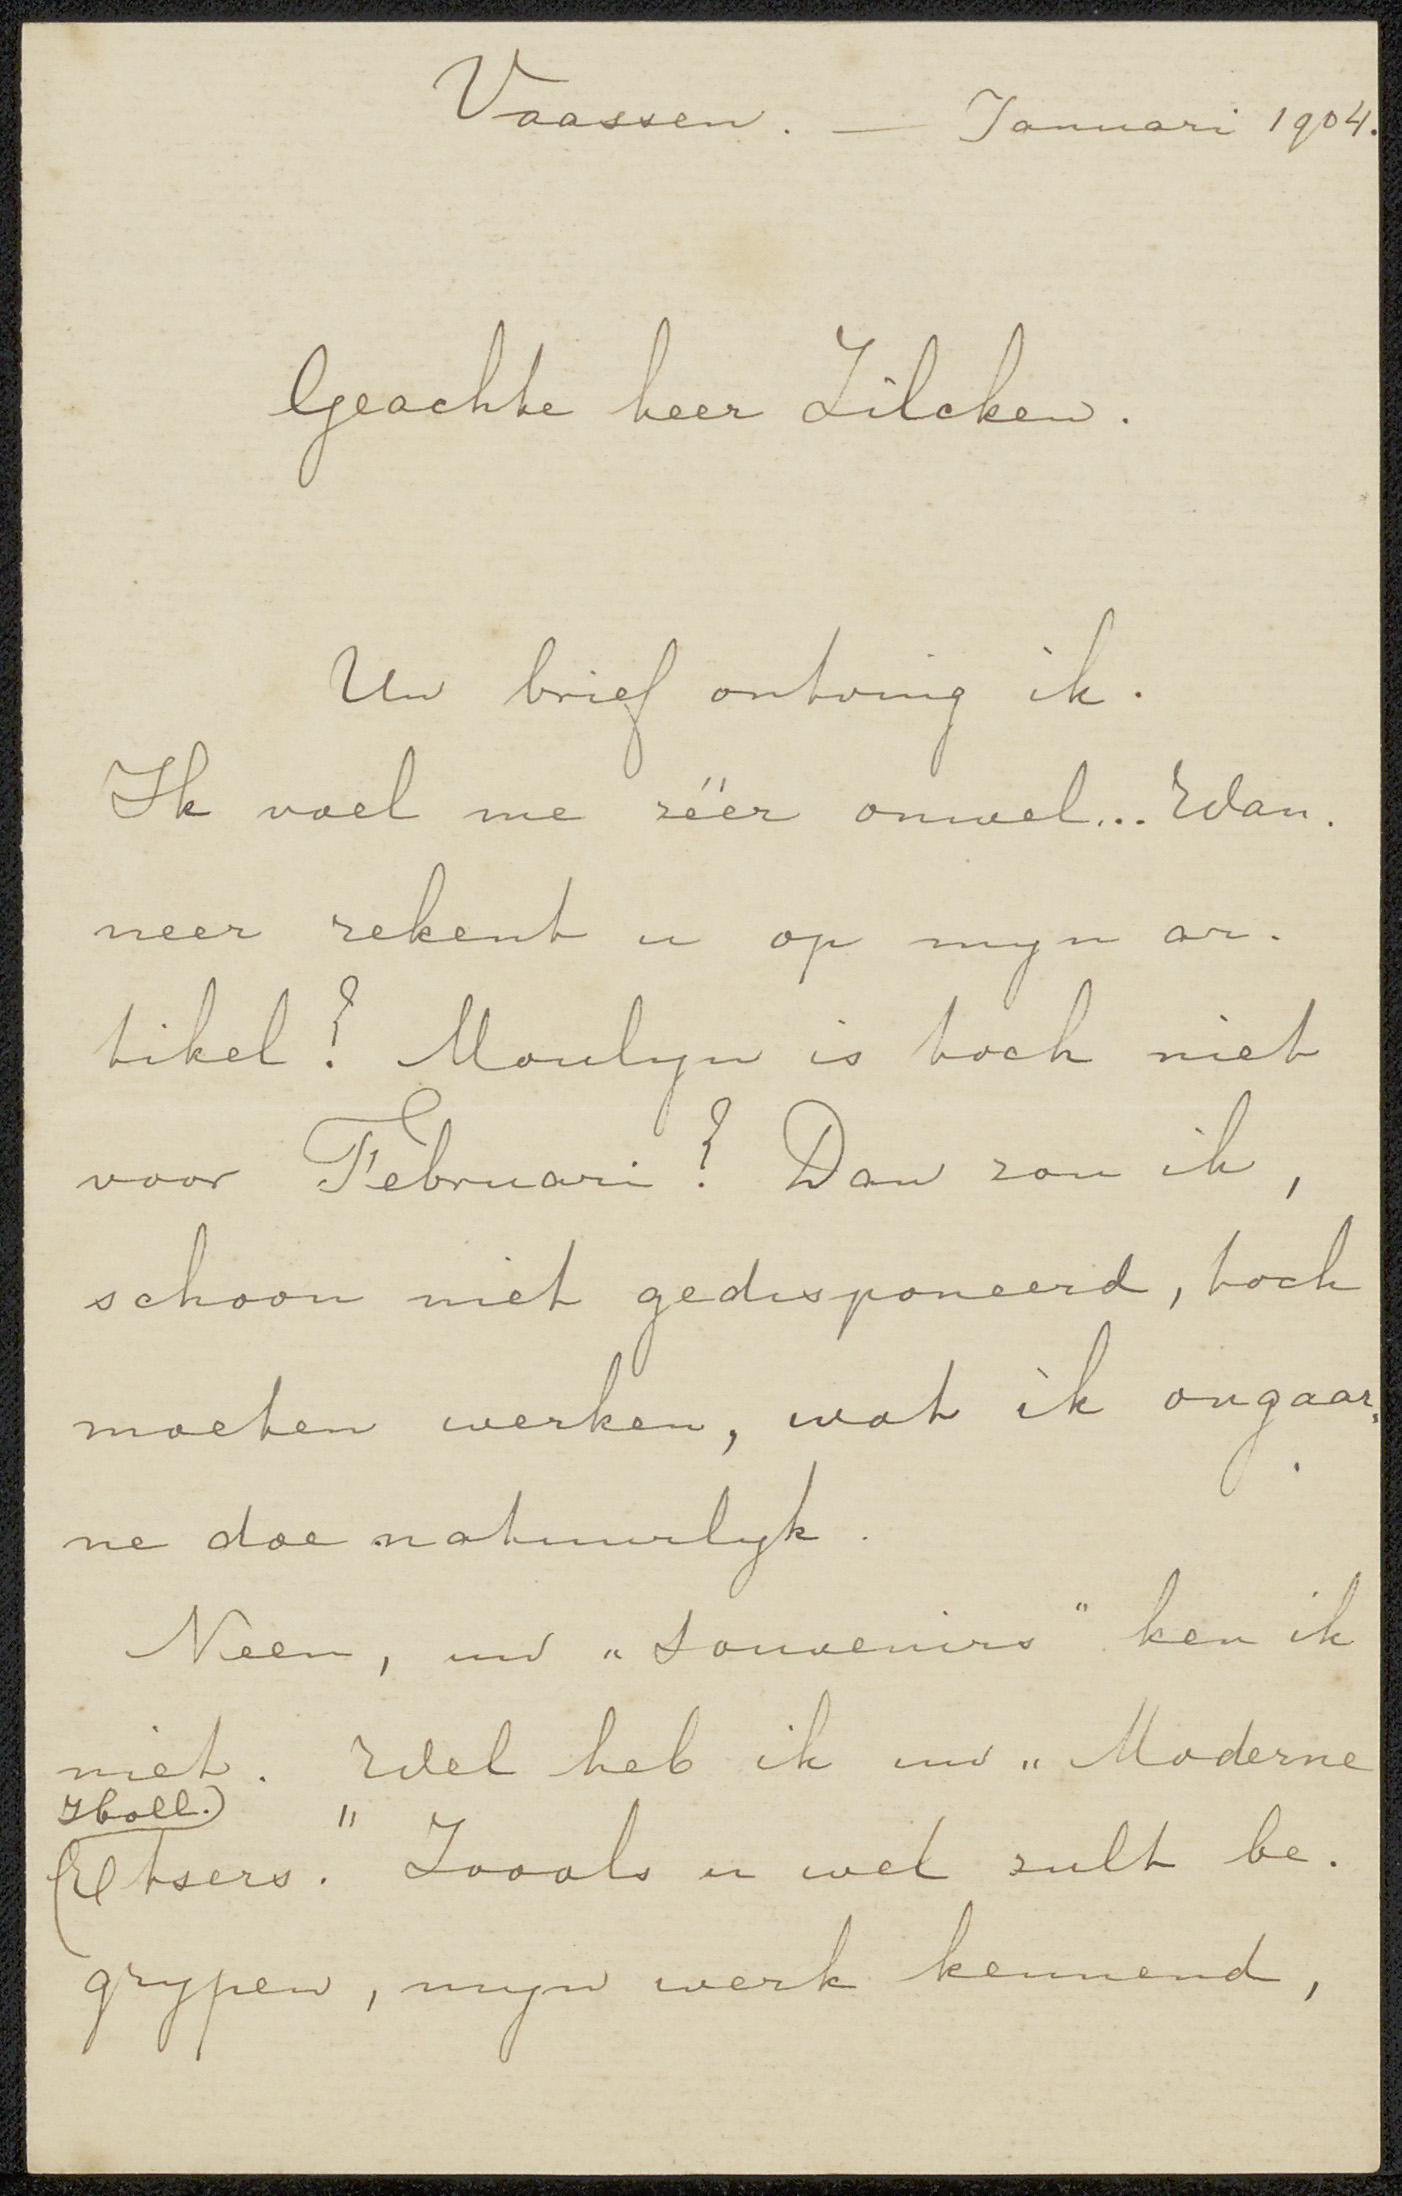 Vaassen. — Januari 1904.
Geachte heer Zilcken.
Uw brief ontving ik.
Ik voel me zéér onwel... Wan-
neer rekent u op myn ar-
tikel? Moulyn is toch niet
voor Februari? Dan zou ik,
schoon niet gedisponeerd, toch
moeten werken, wat ik ongaar-
ne doe natuurlyk.
Neen, uw „Souvenirs" ken ik
niet. Wel heb ik uw „Moderne
(Holl.)
Etsers." Zooals u wel zult be-
grypen, myn werk kennend,